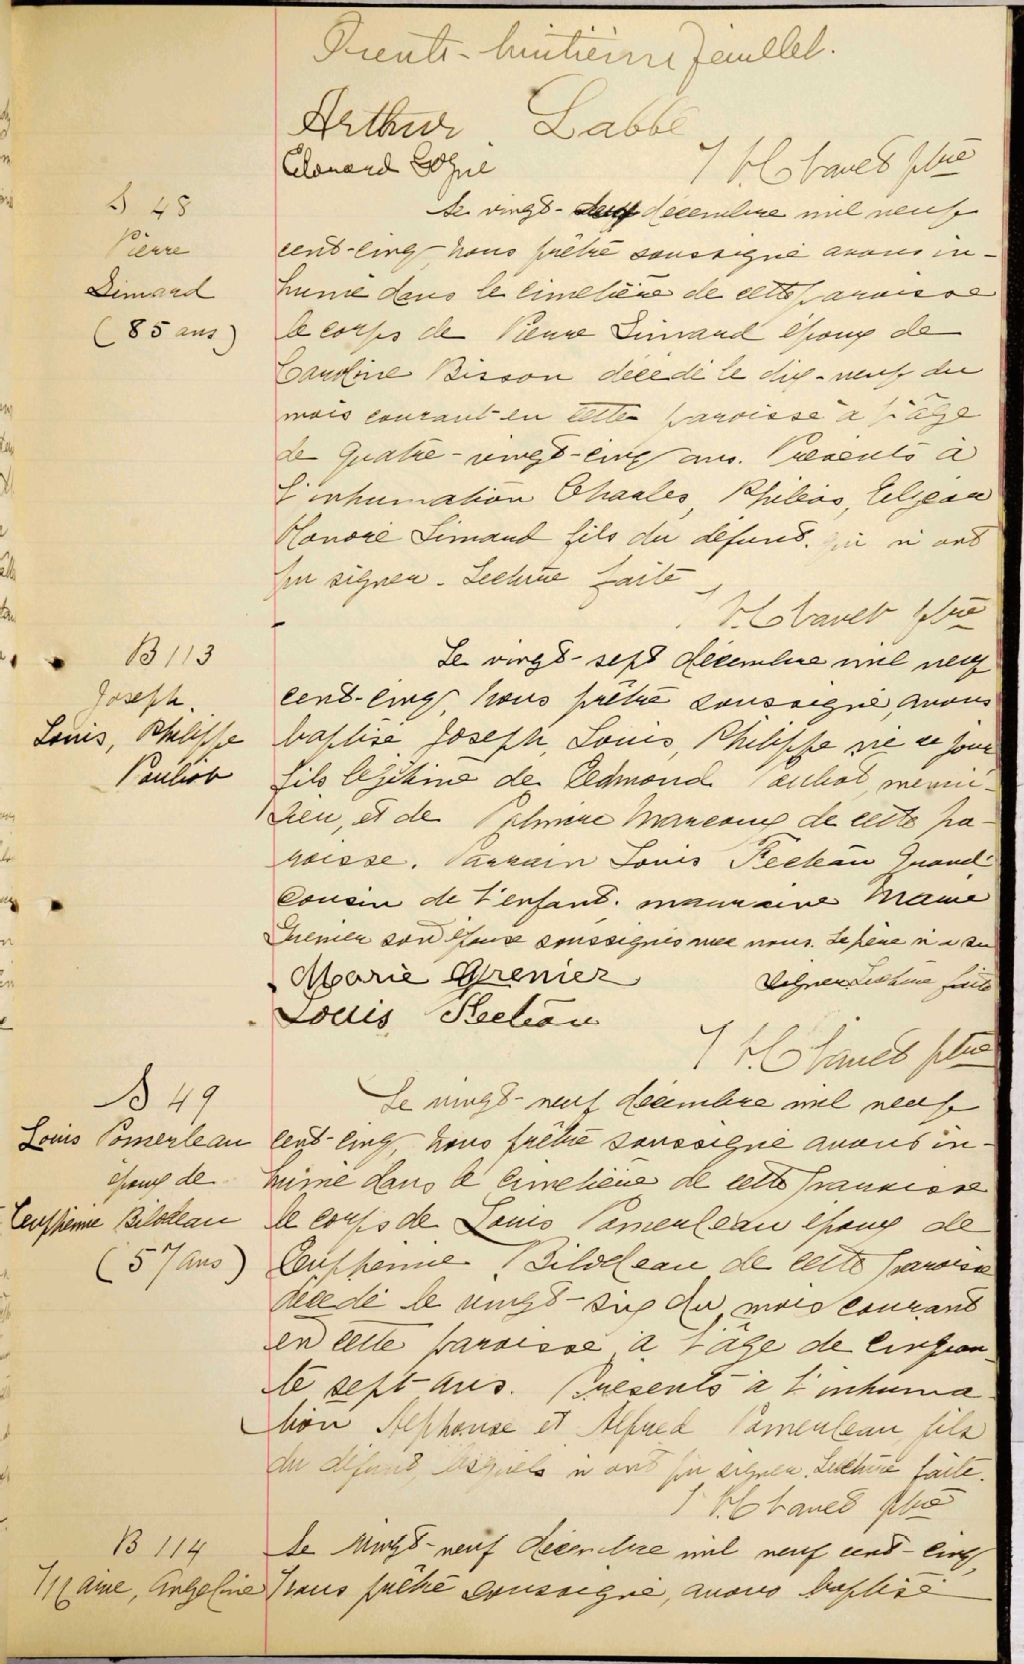 Trente-huitième feuillet.
Arthur Labbé
Edouard
ptre
S 48
Pierre
Simard
(85 ans)
Le vingt-deux decembre mil neuf
cent-cinq, nous prêtre soussigné avons in-
humé dans le cimetière de cette paroisse
le corps de Pierre Simard époux de
Caroline Bisson décédé le dix-neuf du
mois courant en cette paroisse à l'âge
de quatre-vingt-cinq ans. Présents à
l'inhumation Charles, Philéas,
Honoré Simard fils du défunt. qui n'ont
pu signer. Lecture faite
ptre
B 113
Joseph,
Louis, Philippe
Pouliot
Le vingt-sept décembre mil neuf
cent-cinq, nous prêtre soussigné, avons
baptisé Joseph, Louis, Philippe né ce jour
fils légitime de Edmond Pouliot, menui-
sier, et de Palmire Marcoux de cette pa-
roisse. Parrain Louis Fecteau Grand
cousin de l'enfant. marraine Marie
Grenier son épouse soussignés avec nous. Le père n'a su
signer. Lecture faite
Marie Grenier
Louis Fecteau
ptre
S 49
Louis Pomerleau
époux de
Euphémie Bilodeau
(57 ans)
Le vingt-neuf décembre mil neuf
cent-cinq, nous prêtre soussigné avons in-
humé dans le cimetière de cette paroisse
le corps de Louis Pomerleau époux de
Euphémie Bilodeau de cette paroisse
décédé le vingt-six du mois courant
en cette paroisse à l'âge de cinquan-
te sept ans. Présents à l'inhuma-
tion Alphonse et Alfred Pomerleau fils
du défunt lesquels n'ont pu signer. Lecture faite.
ptre
B 114
Marie, Angeline
Le vingt-neuf décembre mil neuf cent-cinq,
Nous prêtre soussigné, avons baptisé